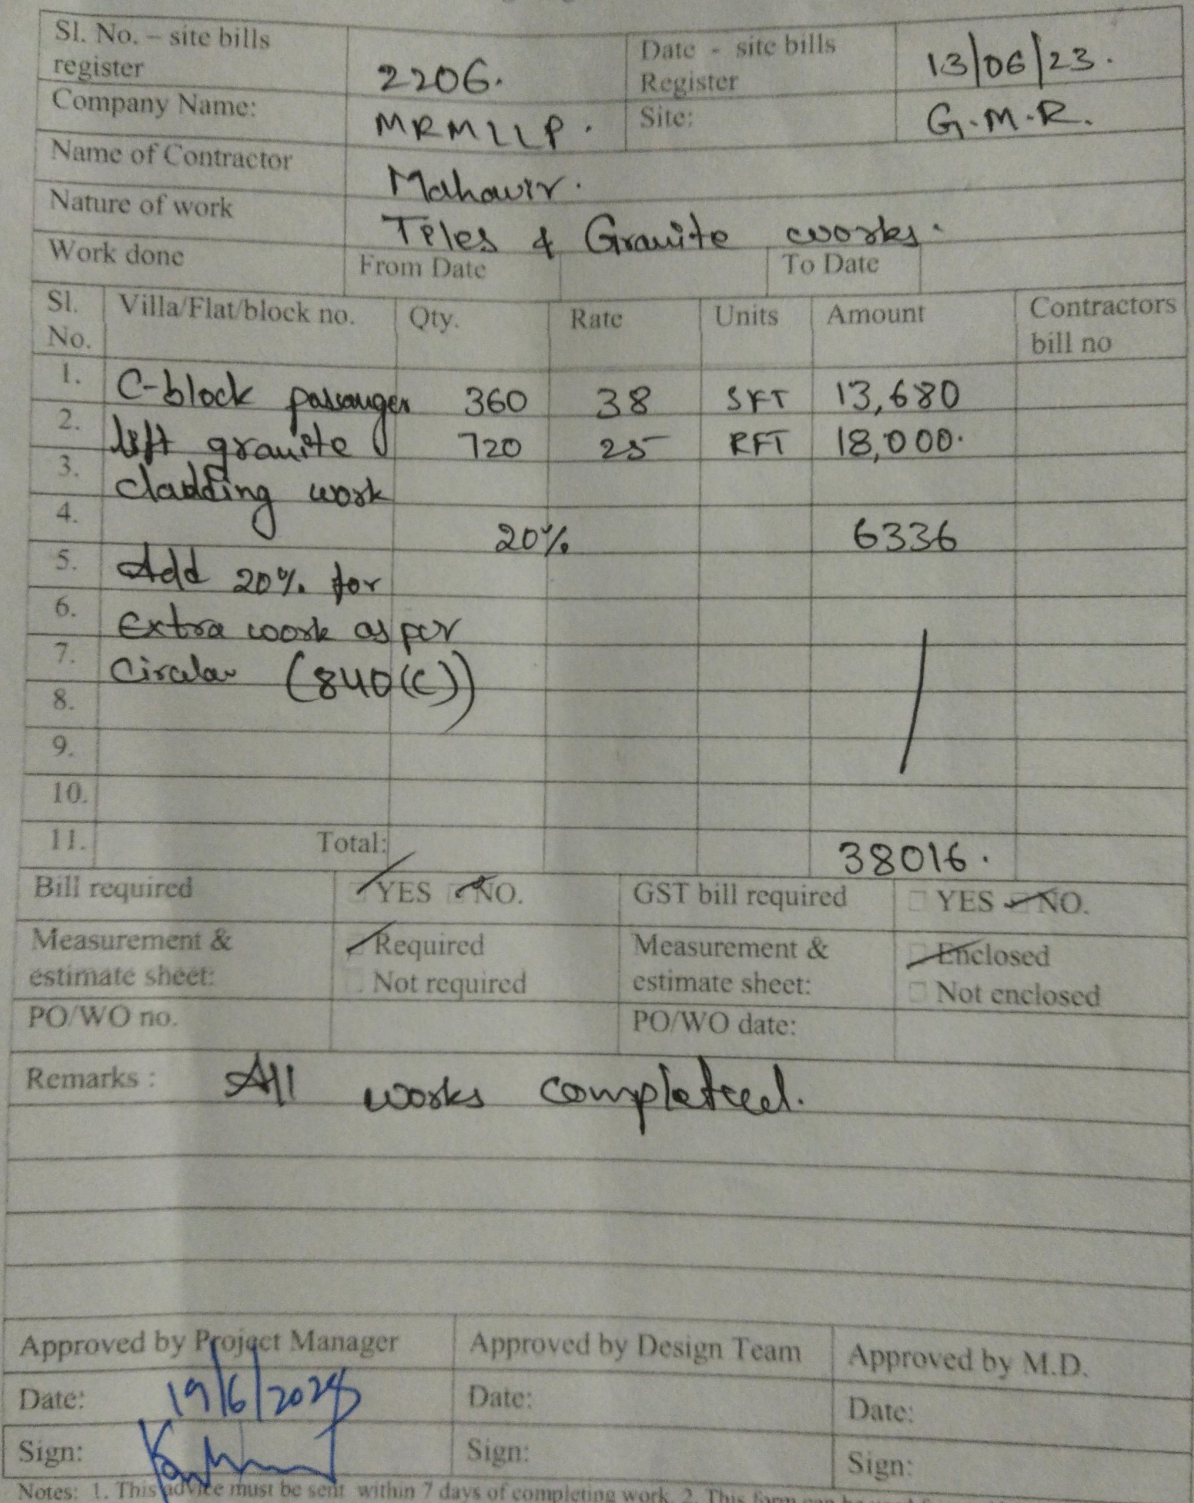 Sl. No. – site bills register 2206. Date - site bills Register 13/06/23.
Company Name: MRMLLP. Site: G.M.R.
Name of Contractor Mahavir.
Nature of work Tiles & Granite works.
Work done From Date To Date
Sl. No. Villa/Flat/block no. Qty. Rate Units Amount Contractors bill no
1. C-block passanger 360 38 SFT 13,680
2. lift granite 720 25 RFT 18,000.
3. cladding work
4. 20% 6336
5. Add 20% for
6. Extra work as per
7. Circular (840(C))
8.
9.
10.
11. Total: 38016.
Bill required YES NO. GST bill required YES NO.
Measurement & estimate sheet: Required Not required Measurement & estimate sheet: Enclosed Not enclosed
PO/WO no. PO/WO date:
Remarks : All works completed.
Approved by Project Manager Approved by Design Team Approved by M.D.
Date: 19/6/2023 Date: Date:
Sign: Sign: Sign:
Notes: 1. This advice must be sent within 7 days of completing work. 2. This form can be